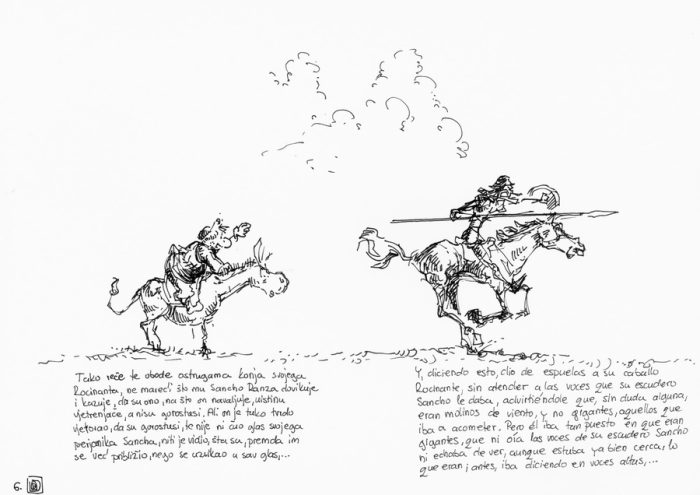 Tako reče te obode ostrugama konja svojega
Rocinanta, ne mareći što mu Sancho Panza dovikuje
i kazuje, da su ono, na što on navaljuje, uistinu
vjetrenjače, a nisu gorostasi. Ali on je tako tvrdo
vjerovao, da su gorostasi, te nije ni čuo glas svojega
perjanika Sancha, niti je vidio, šta su, premda im
se već približio, nego se uzvikao u sav glas,...
Y, diciendo esto, dio de espuelas a su caballo
Rocinante, sin atender a las voces que su escudero
Sancho le daba, advirtiéndole que, sin duda alguna,
eran molinos de viento, y no gigantes, aquellos que
iba a acometer. Pero él iba tan puesto en que eran
gigantes, que ni oía las voces de su escudero Sancho
ni echaba de ver, aunque estaba ya bien cerca, lo
que eran; antes, iba diciendo en voces altas,...
6.